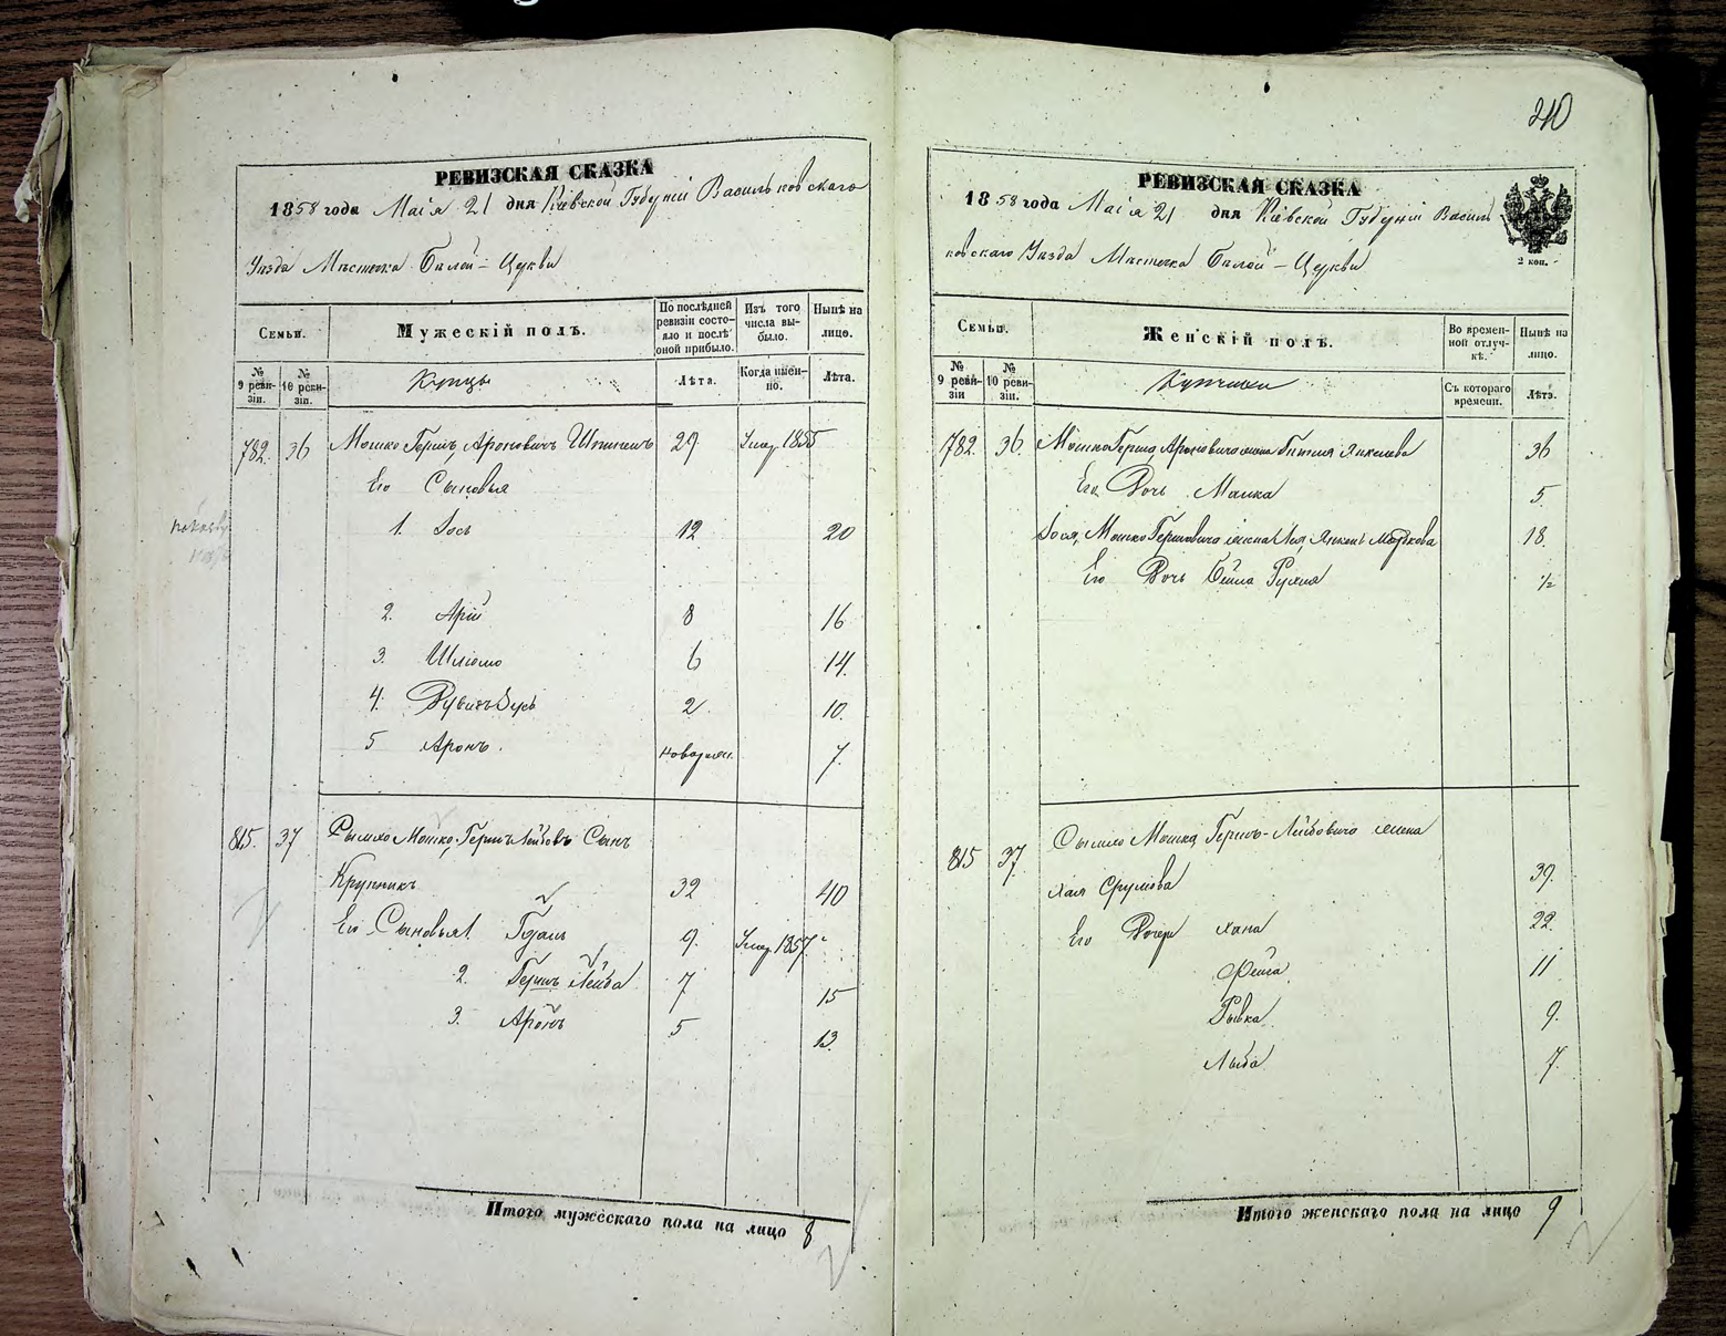 210
РЕВИЗСКАЯ СКАЗКА
1858 года Маія 21 дня Кіевской Губерніи Васильковскаго
Уѣзда Мѣстечка Бѣлой-Церкви
Семьи.
Мужескій полъ.
По послѣдней ревизіи состояло и послѣ оной прибыло.
Изъ того числа выбыло.
Нынѣ на лицо.
№ 9 ревизіи.
№ 10 ревизіи.
Купцы
Лѣта.
Когда именно.
Лѣта.
782. 36 Мошко Гершъ Ароновичъ 29 Умер. 1855
Его Сыновья
1. Іось 12 20
2. Арій 8 16
3. Шліомо 6 14.
4. 2 10.
5 Аронъ. новорожд. 7.
815. 37 Мошко, Гершъ Лейбовъ Сынъ
Крупникъ 32 40
Его Сыновья 1. 9. Умер. 1857
2. Гершъ Лейба 7 15
3. Аронъ 5 13.
Итого мужескаго пола на лицо 8
РЕВИЗСКАЯ СКАЗКА
1858 года Маія 21 дня Кіевской Губерніи Василь
ковскаго Уѣзда Мѣстечка Бѣлой-Церкви
2 коп.
Семьи.
Женскій полъ.
Во временной отлучкѣ.
Нынѣ на лицо.
№ 9 ревизіи
№ 10 ревизіи.
Купчихи
Съ котораго времени.
Лѣта.
782. 36. Мошко Герша Ароновича жена 36
Его Дочь Малка 5.
Іося, Мошко Гершковича жена Лея, Маркова 18.
Его Дочь Бейла Рухля 1/2
815 37. Мошко Гершъ-Лейбовича жена
Хая Срулева 39.
Его Дочери Хана 22.
Фейга 11
Рывка 9.
7.
Итого женскаго пола на лицо 9